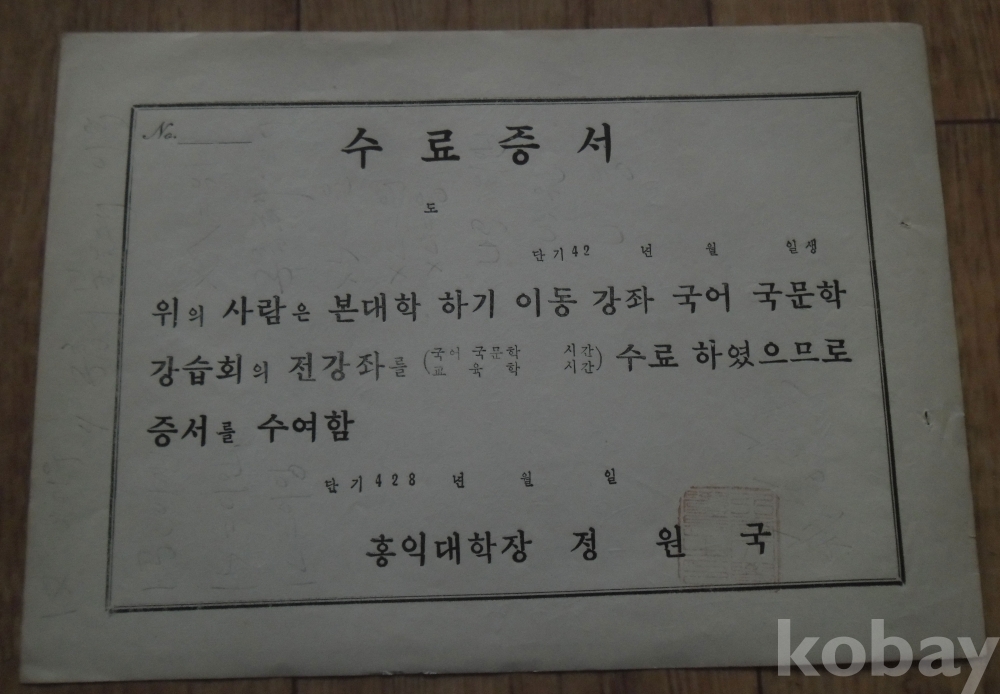 No.
수 료 증 서
도
단기 42 년 월 일생
위의 사람은 본대학 하기 이동 강좌 국어 국문학
강습회의 전강좌를 (국어 국문학 시간 교 육 학 시간) 수료 하였으므로
증서를 수여함
단기 428 년 월 일
홍익대학장 정 원 국
kobay